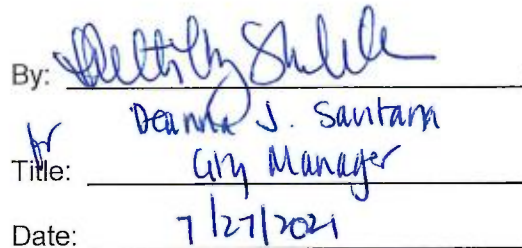 By:
for Deanna J. Santana
Title: City Manager
Date: 7/27/2021